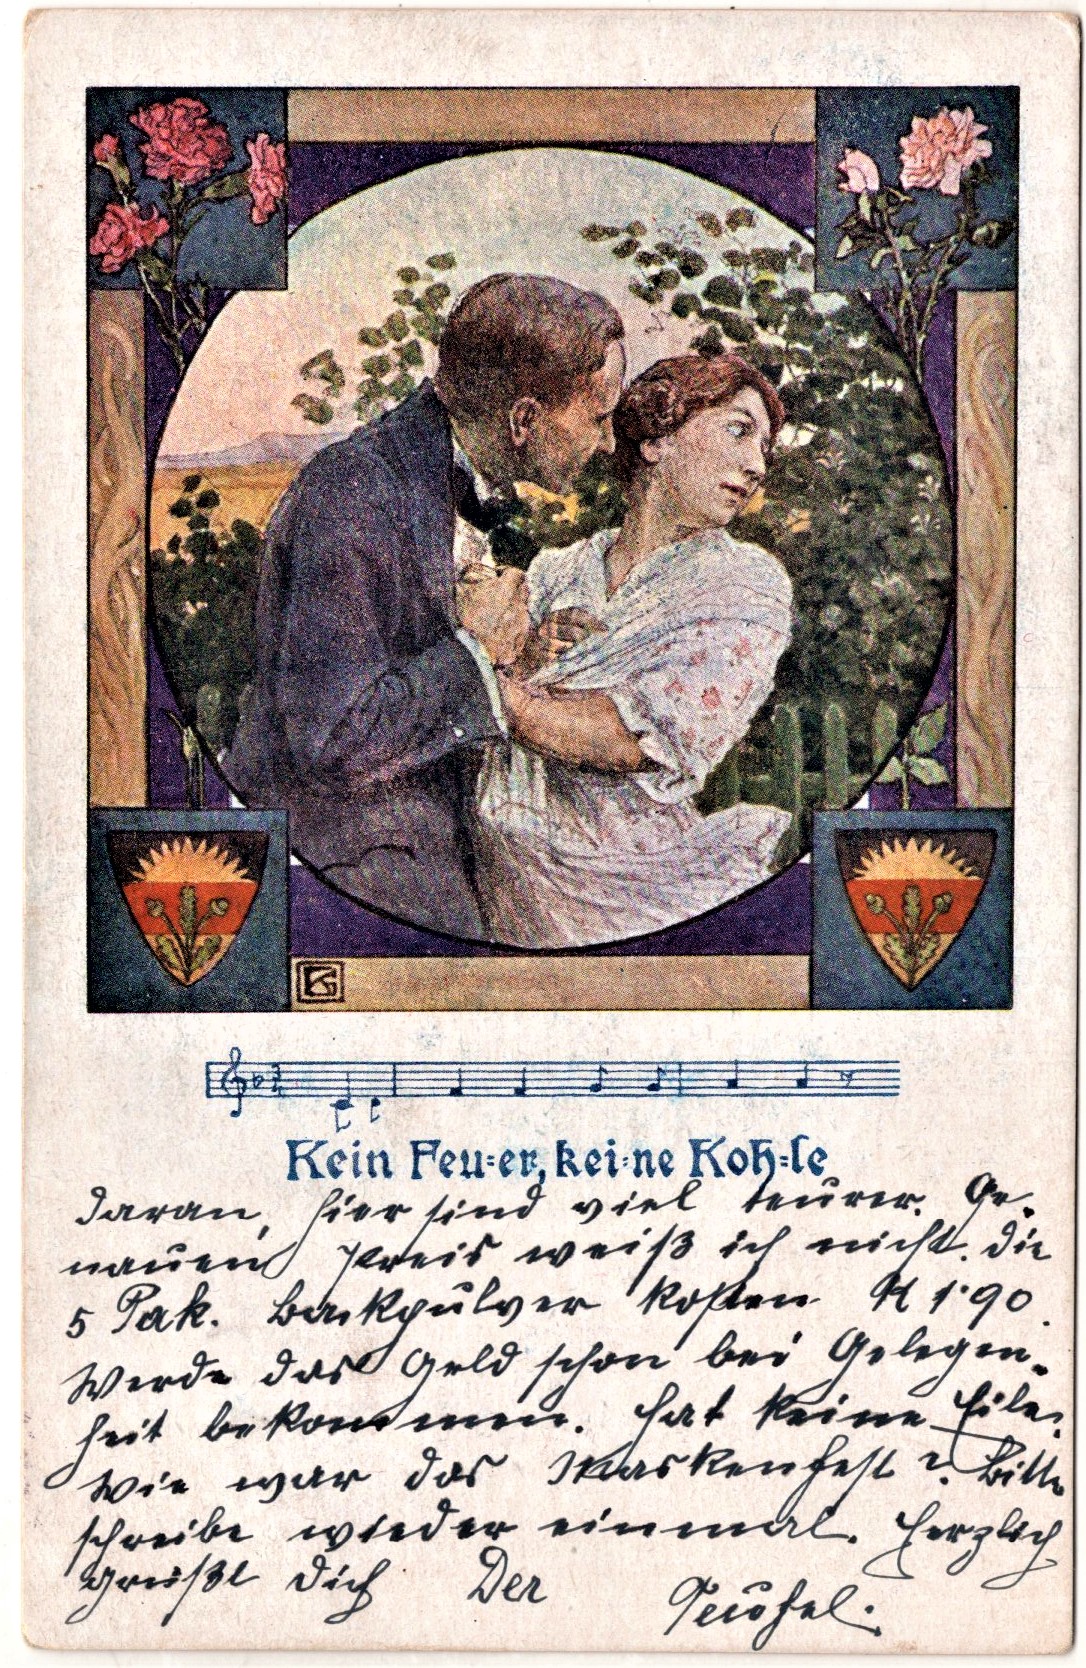 Kein Feu=er, kei=ne Koh=le
daran, hier sind viel teurer. Ge-
nauen Preis weiß ich nicht. Die
5 Pak. Backpulver kosten K 1·90.
Werde das Geld schon bei Gelegen-
heit bekommen. Hat keine Eile.
Wie war das Maskenfest? Bitte
schreibe wieder einmal. Herzlich
grüßt dich Der
Teufel.